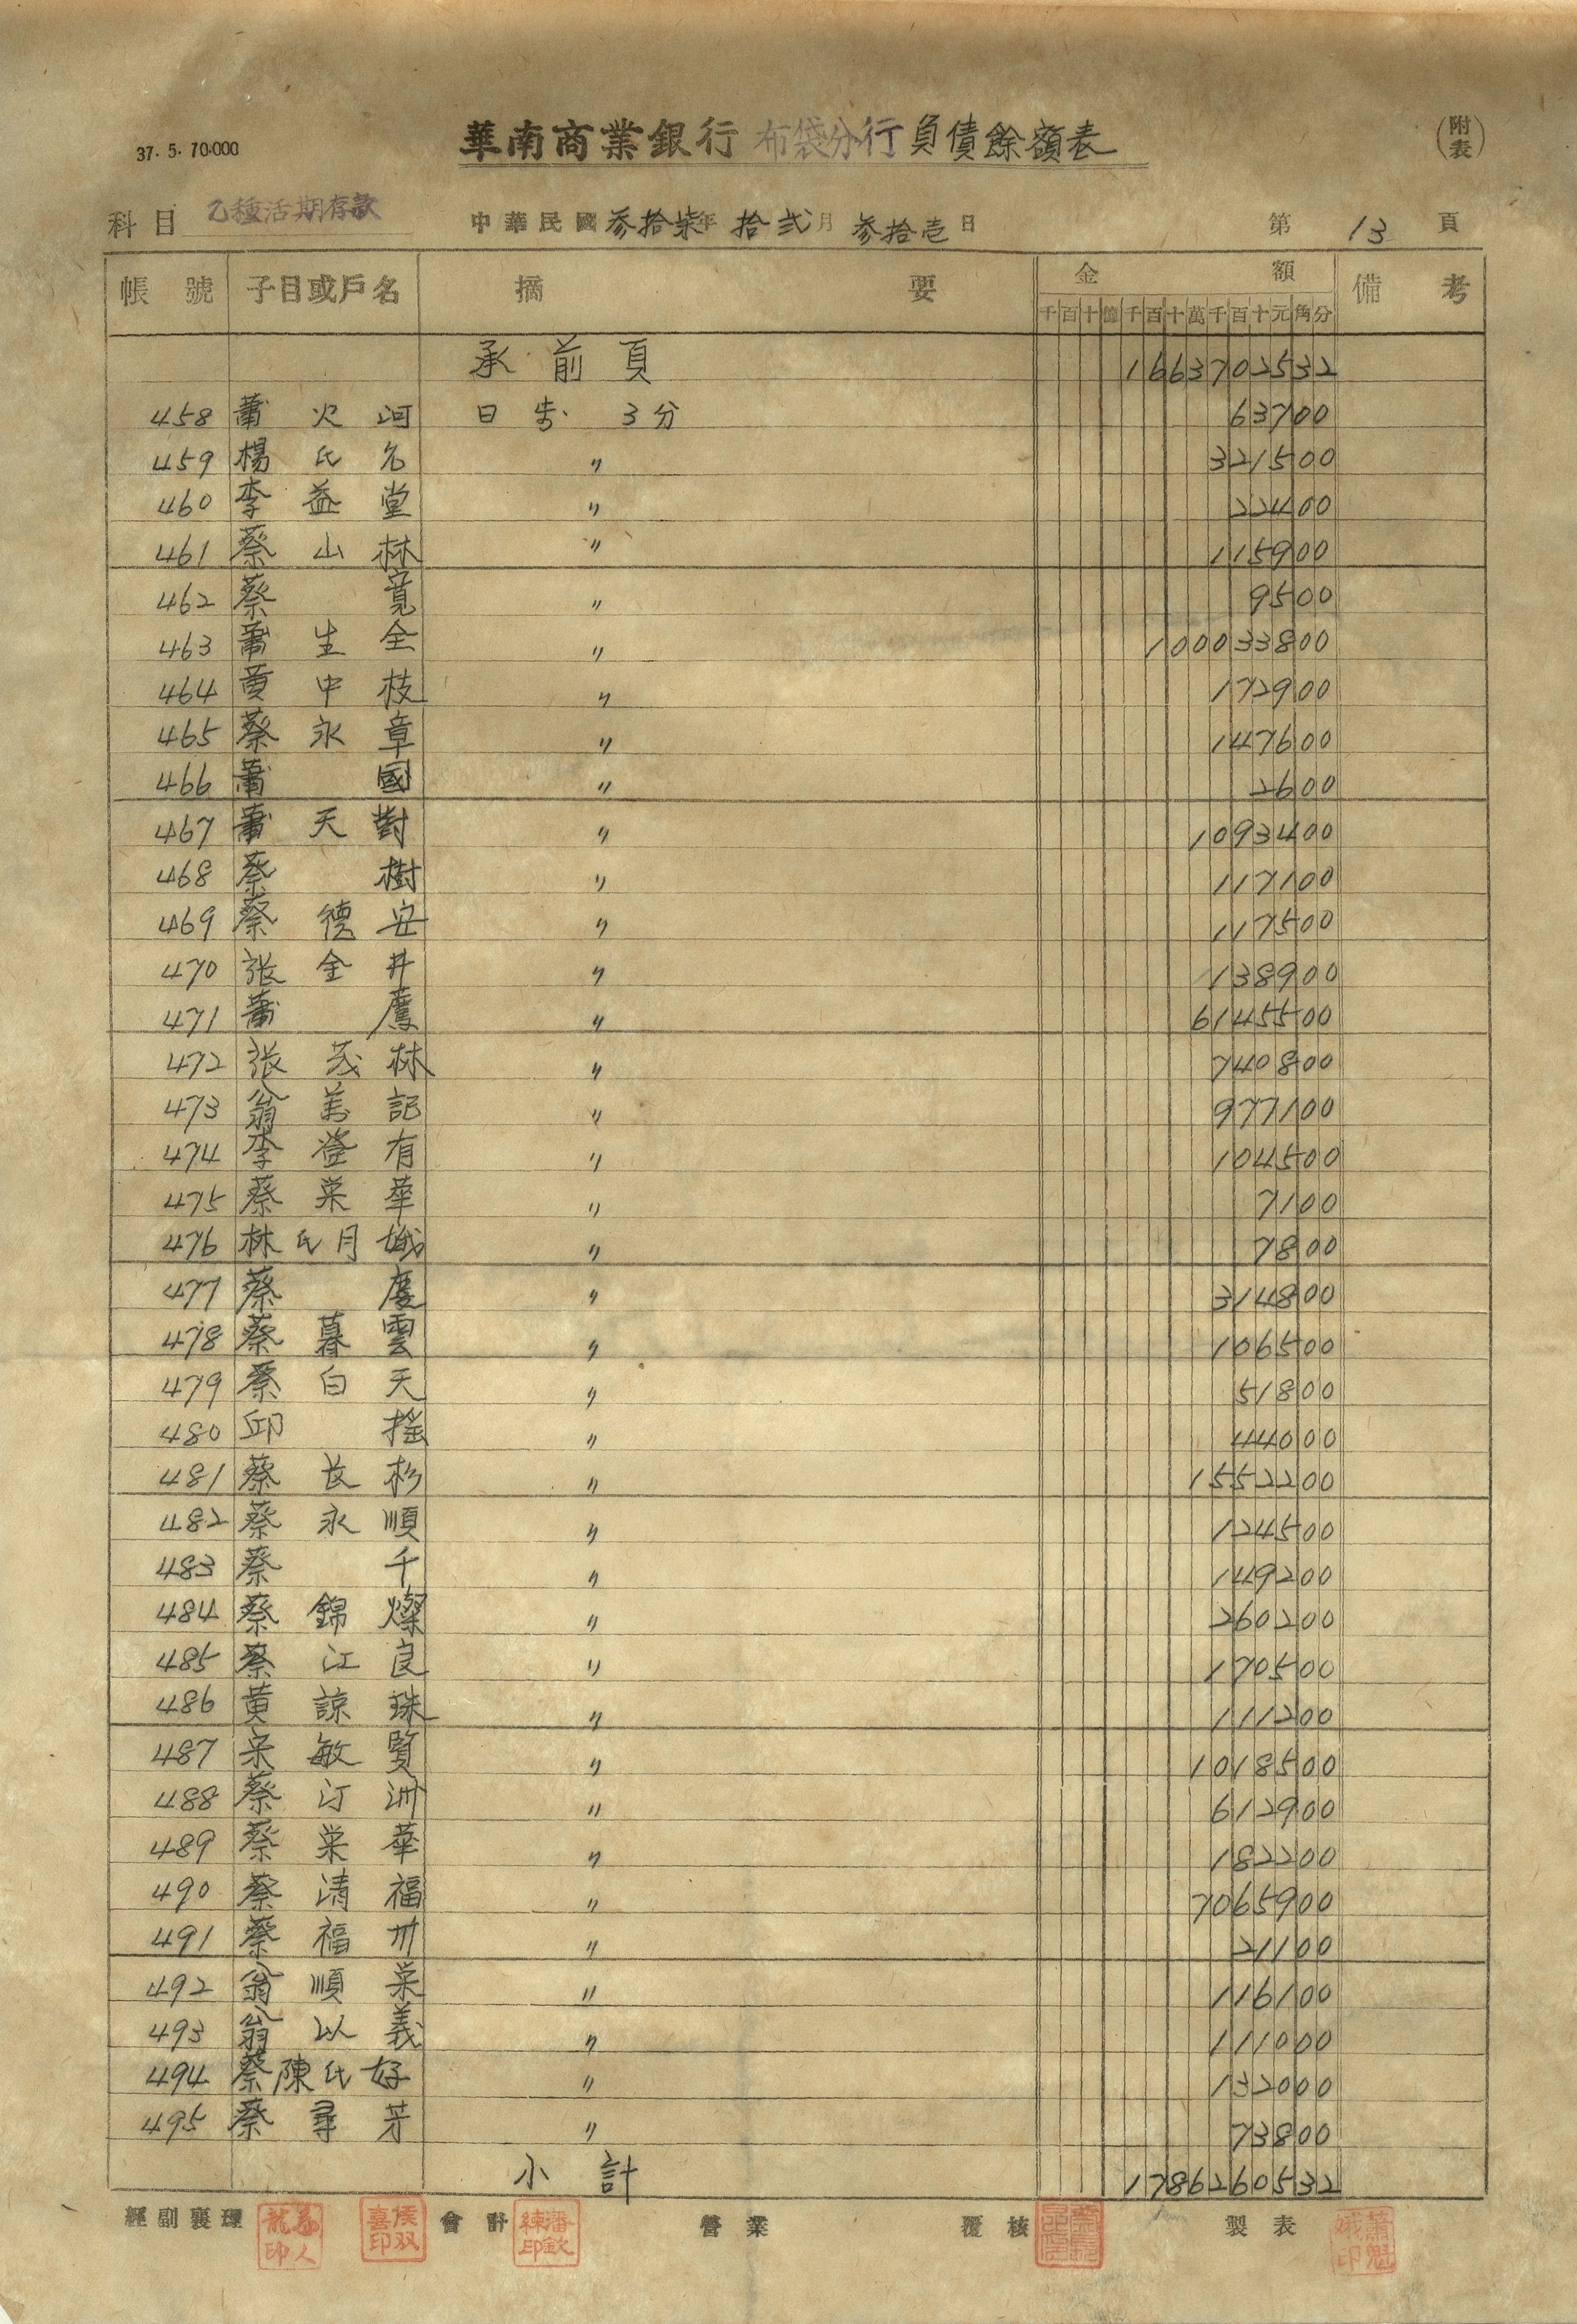 37. 5. 70.000
華南商業銀行 布袋分行 負債餘額表
(附表)
科目 乙種活期存款 中華民國 參拾柒年 拾弍月 參拾壱日 第 13 頁
帳號 子目或戶名 摘要 金額 備考
千百十億千百十萬千百十元角分
承前頁 1663702532
458 蕭火河 日歩 3分 63700
459 楊氏 〃 321500
460 李益堂 〃 22400
461 蔡山林 〃 115900
462 蔡寬 〃 9500
463 蕭生全 〃 100033800
464 黃中枝 〃 172900
465 蔡永章 〃 147600
466 蕭國 〃 2600
467 蕭天對 〃 1093400
468 蔡樹 〃 117100
469 蔡德安 〃 117500
470 張全井 〃 138900
471 蕭鷹 〃 6145500
472 張茂林 〃 740800
473 翁萬記 〃 977100
474 李登有 〃 104500
475 蔡栄華 〃 7100
476 林氏月娥 〃 7800
477 蔡慶 〃 314800
478 蔡暮雲 〃 106500
479 蔡白天 〃 51800
480 邱搖 〃 44000
481 蔡長杉 〃 1552200
482 蔡永順 〃 124500
483 蔡千 〃 149200
484 蔡錦燦 〃 260200
485 蔡江良 〃 170500
486 黃諒珠 〃 111200
487 敏賢 〃 1018500
488 蔡汀洲 〃 612900
489 蔡栄華 〃 182200
490 蔡清福 〃 7065900
491 蔡福卅 〃 21100
492 翁順栄 〃 116100
493 翁以義 〃 111000
494 蔡陳氏好 〃 132000
495 蔡尋芳 〃 73800
小計 1786260532
經副襄理 會計 營業 覆核 製表
侯双喜印 潘欽練印 蕭魁娥印